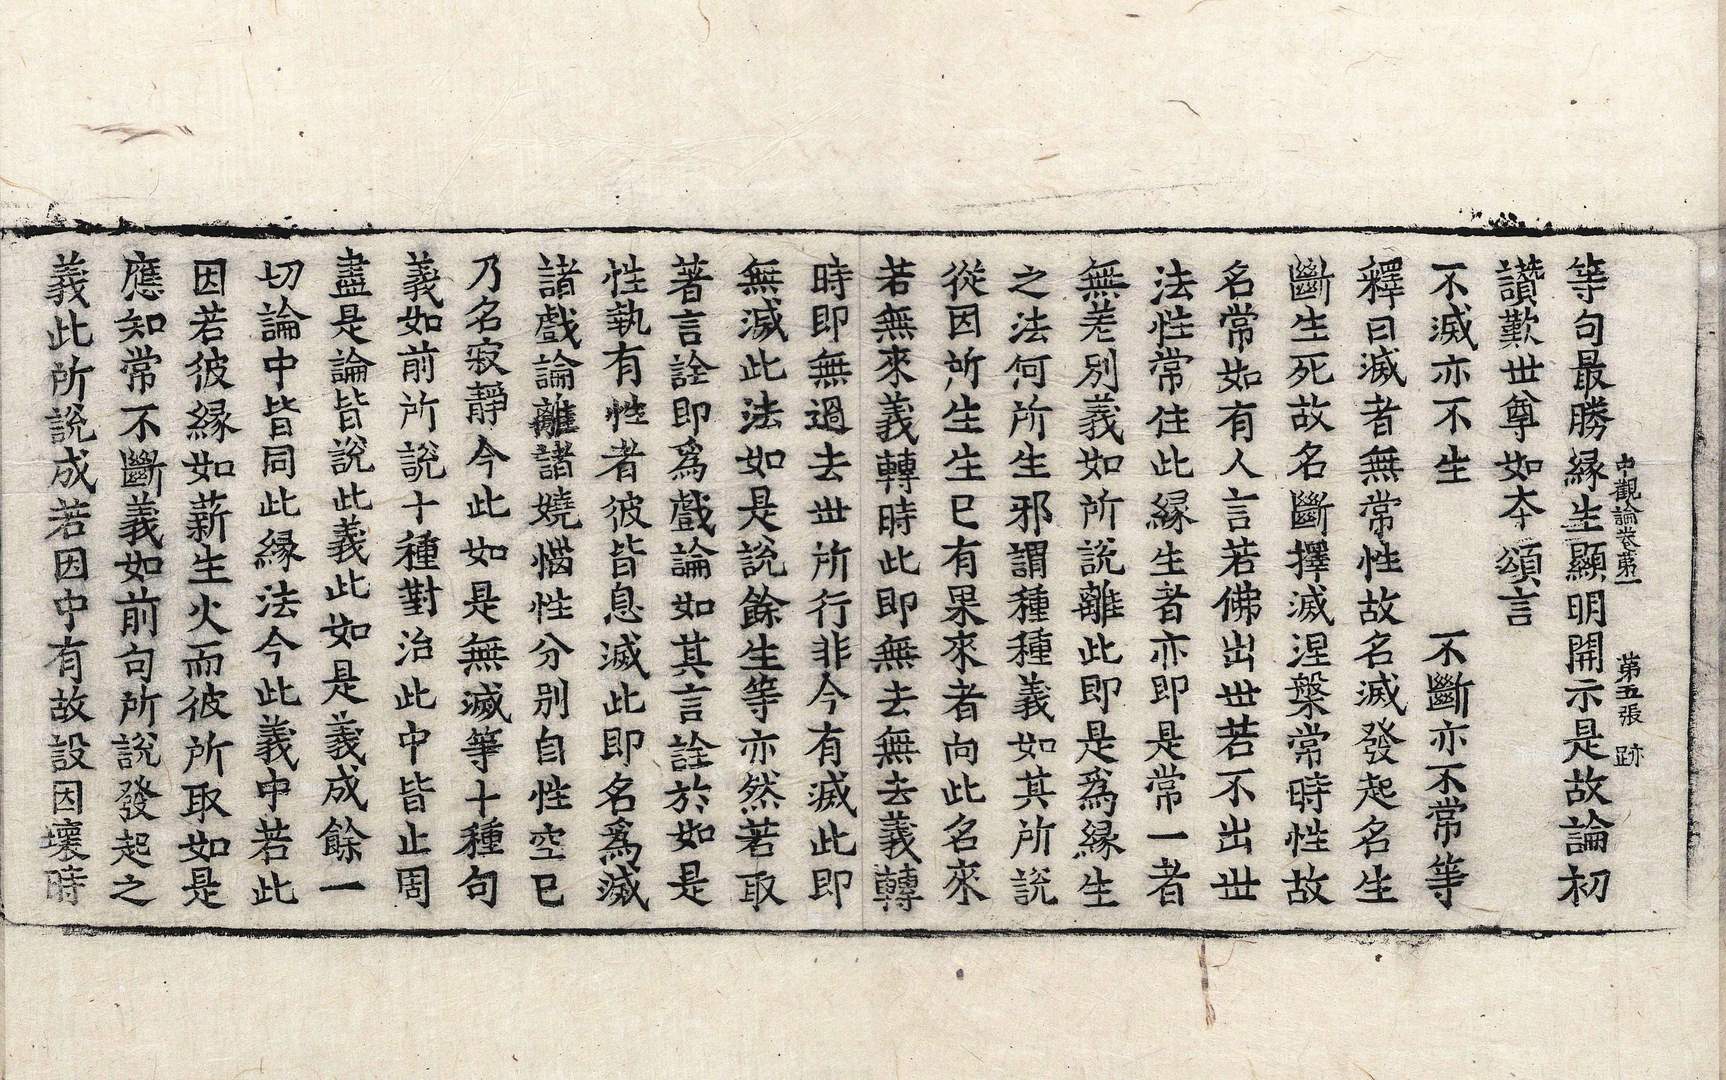 中觀論卷第一　第五張　跡
等句最勝緣生顯明開示是故論初
讚歎世尊如本頌言
不滅亦不生　不斷亦不常等
釋曰滅者無常性故名滅發起名生
斷生死故名斷擇滅涅槃常時性故
名常如有人言若佛出世若不出世
法性常住此緣生者亦即是常一者
無差別義如所說離此即是爲緣生
之法何所生邪謂種種義如其所說
從因所生生已有果來者向此名來
若無來義轉時此即無去無去義轉
時即無過去世所行非今有滅此即
無滅此法如是說餘生等亦然若取
著言詮即爲戲論如其言詮於如是
性執有性者彼皆息滅此即名爲滅
諸戲論離諸嬈惱性分別自性空已
乃名寂靜今此如是無滅等十種句
義如前所說十種對治此中皆止周
盡是論皆說此義此如是義成餘一
切論中皆同此緣法今此義中若此
因若彼緣如薪生火而彼所取如是
應知常不斷義如前句所說發起之
義此所說成若因中有故設因壞時